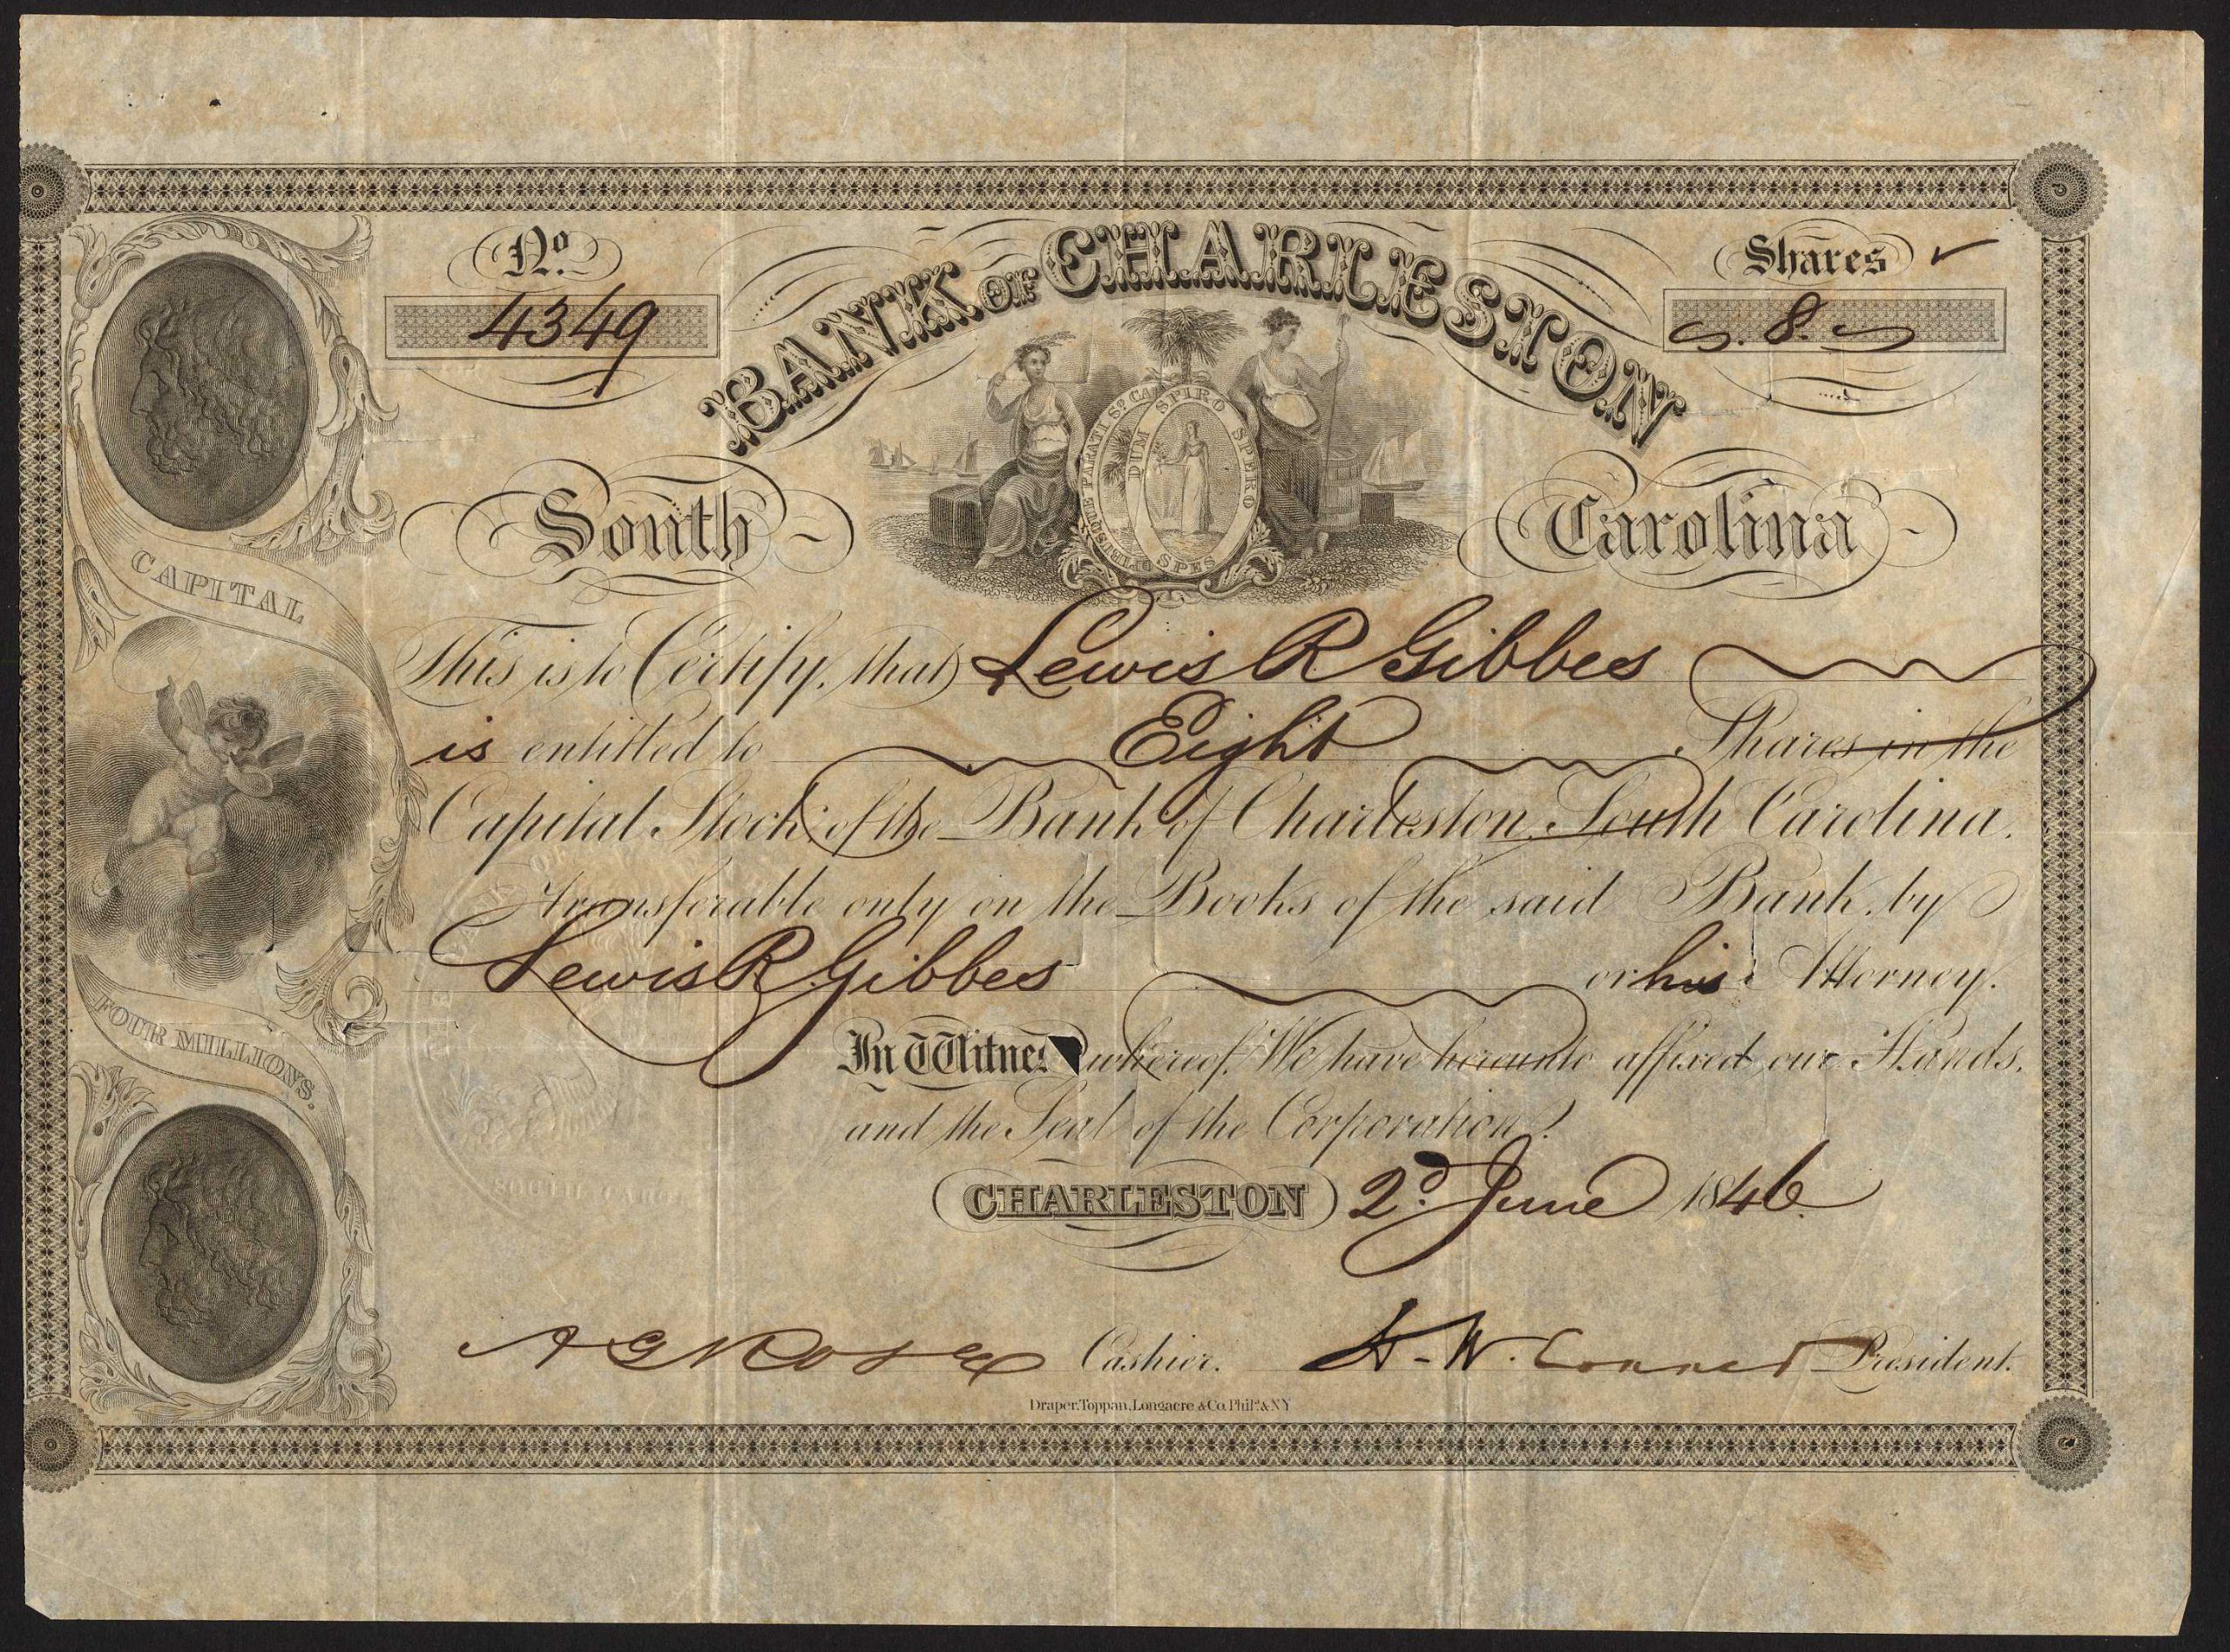 No.
4349
BANK OF CHARLESTON
Shares
8.
South
Carolina
DUM SPIRO SPERO
SPES
CAPITAL
This is to Certify, that Lewis R Gibbes
is entitled to Eight Shares in the
Capital Stock of the Bank of Charleston South Carolina.
transferable only on the Books of the said Bank, by
Lewis R Gibbes or his Attorney.
FOUR MILLIONS.
In Witness whereof, We have hereunto affixed our Hands,
and the Seal of the Corporation.
SOUTH CARO
CHARLESTON 2d June 1846
A G Rose Cashier. H. W. Conner President.
Draper, Toppan, Longacre & Co. Phila. & NY